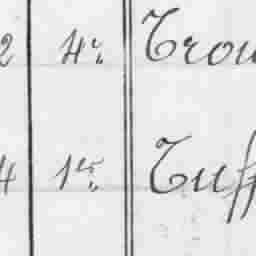 2 4r. Trou
4 1er. Tuff